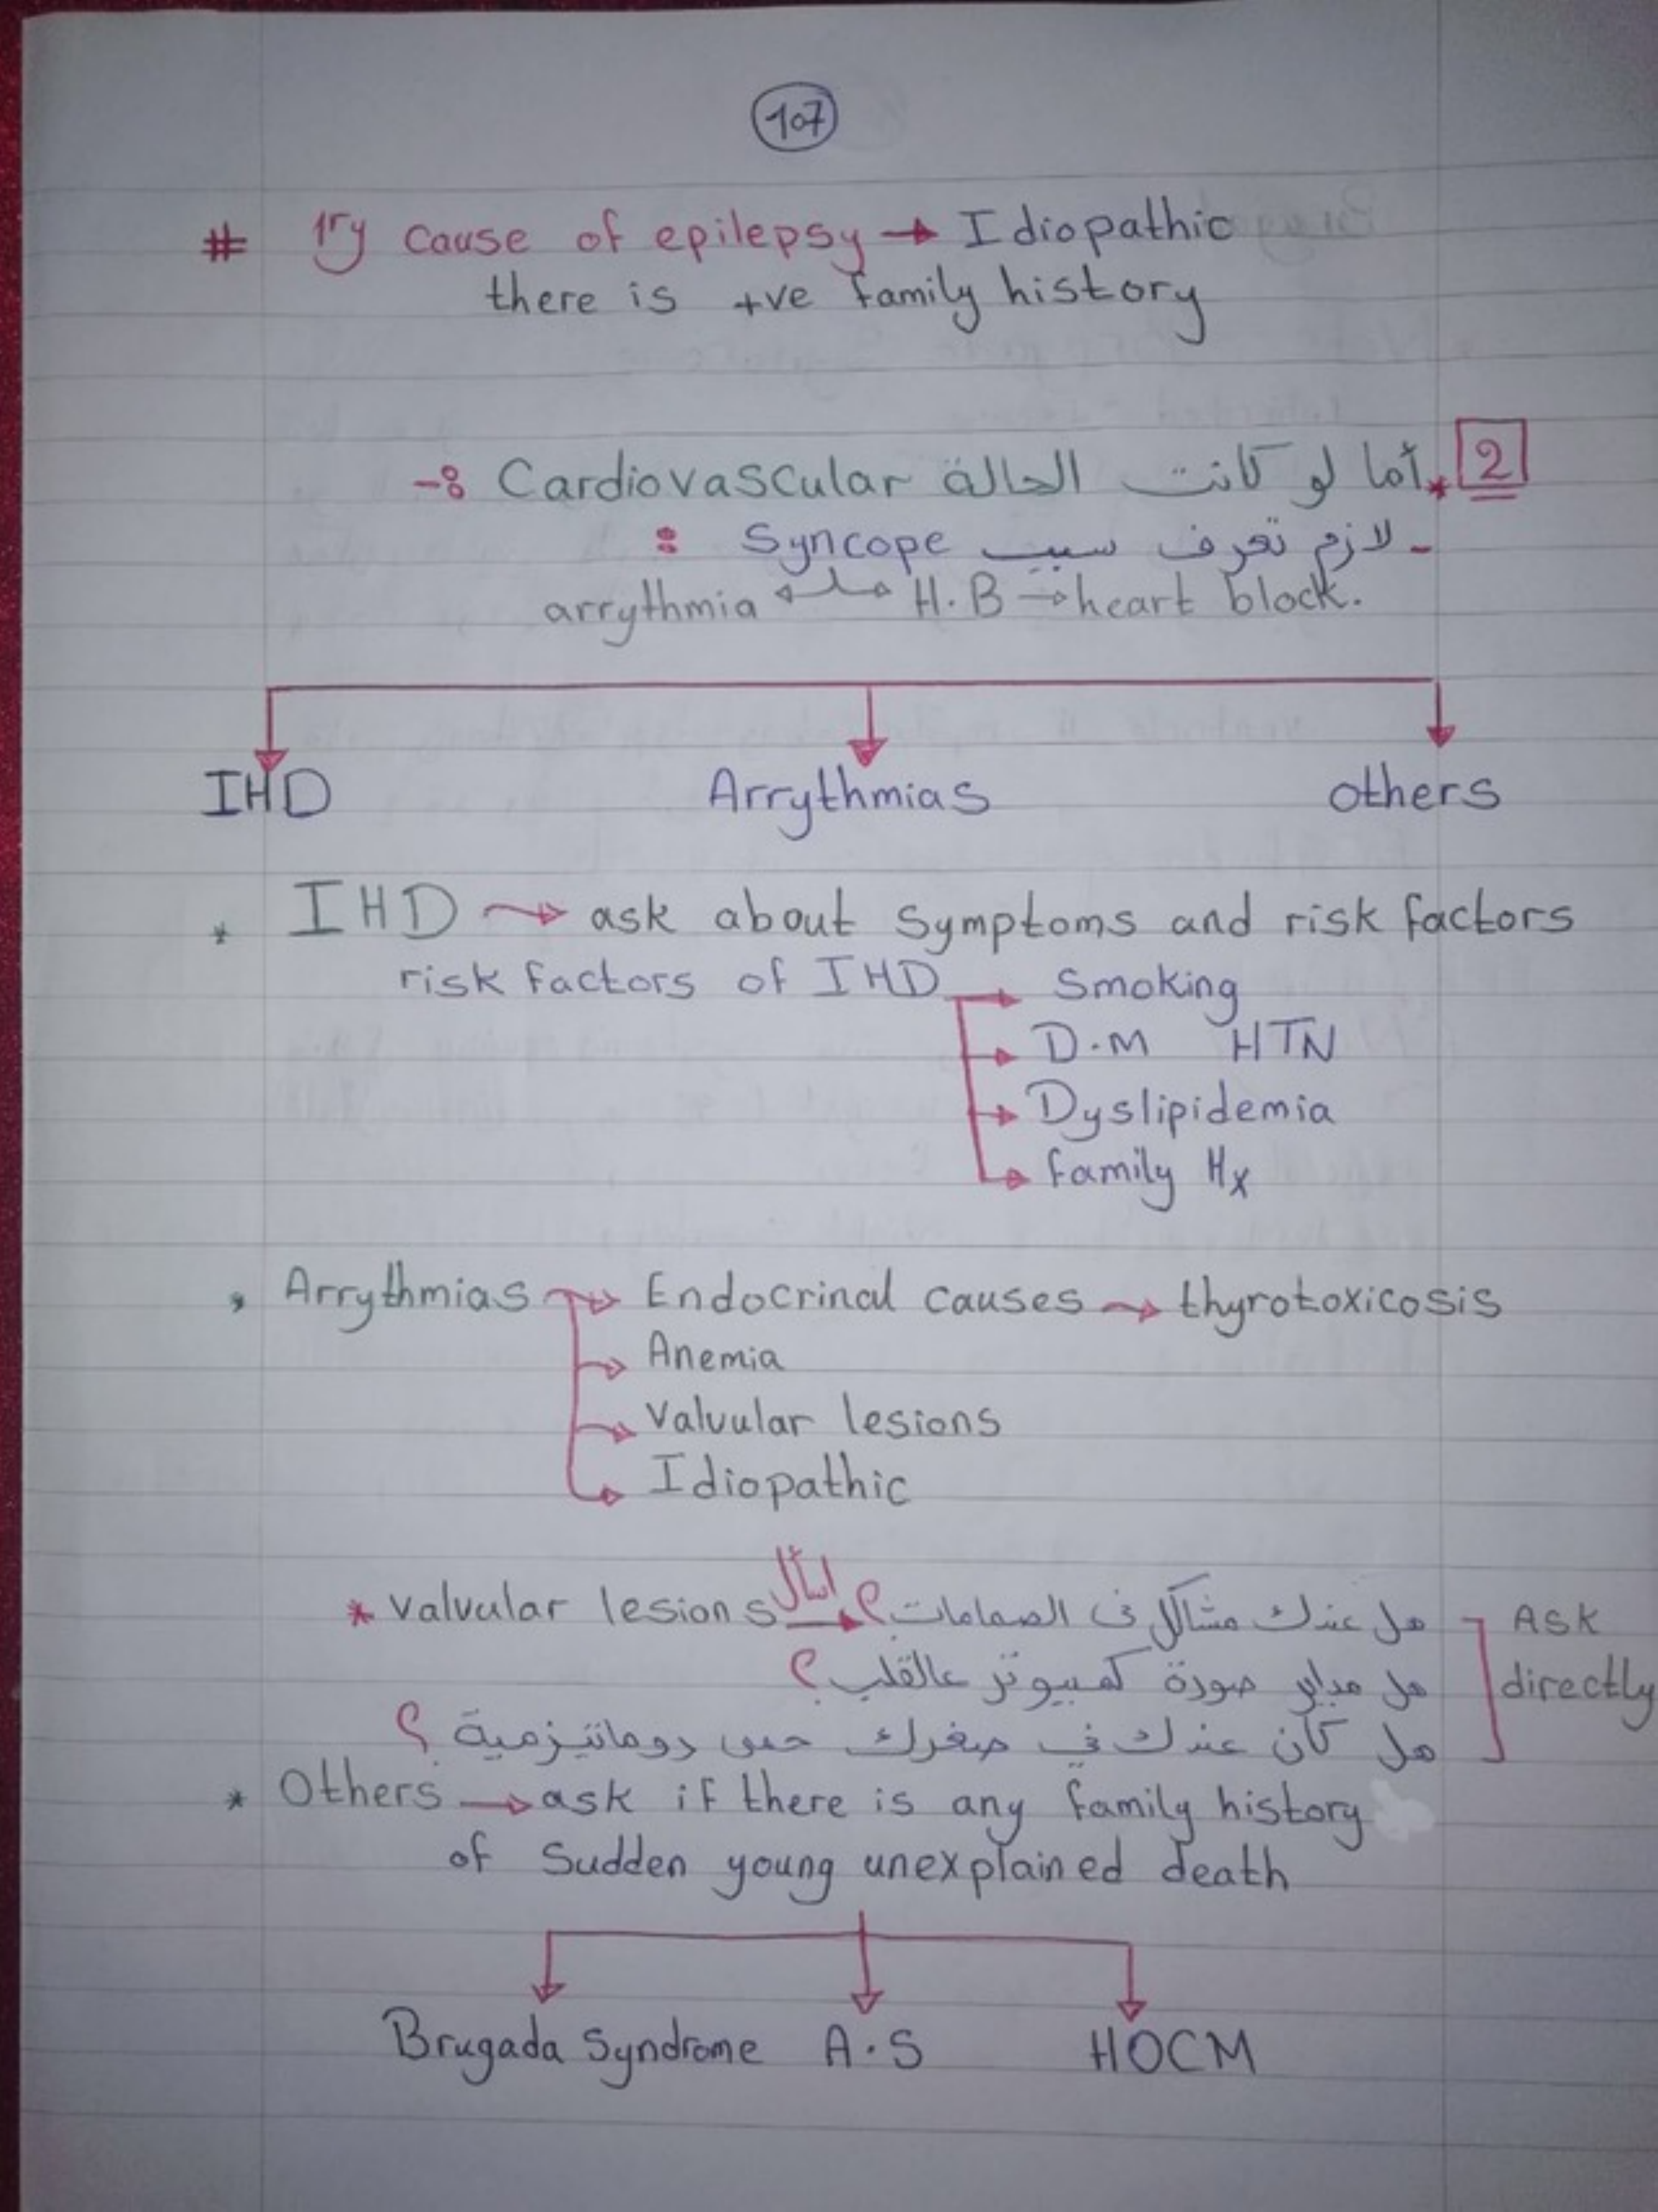 107
# 1ry cause of epilepsy → Idiopathic
there is +ve family history
2 * أما لو كانت الحالة Cardiovascular :-
- لازم تعرف سبب Syncope :
arrythmia ← → H.B → heart block.
IHD Arrythmias others
* IHD → ask about symptoms and risk factors
risk factors of IHD → Smoking
→ D.M HTN
→ Dyslipidemia
→ family Hx
* Arrythmias → Endocrinal causes → thyrotoxicosis
→ Anemia
→ Valvular lesions
→ Idiopathic
* valvular lesions اسأل → هل عندك مشاكل فى الصمامات؟ Ask
هل عداي صورة كمبيوتر عالقلب؟ directly
هل كان عندك في صغرك حمى روماتيزمية؟
* Others → ask if there is any family history
of Sudden young unexplained death
Brugada Syndrome A.S HOCM